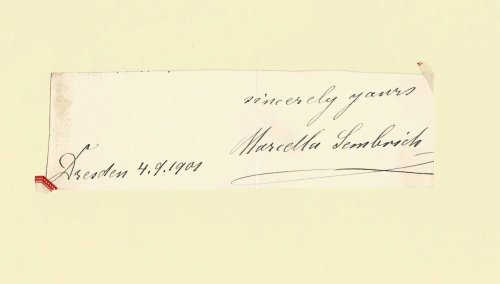 sincerely yours
Marcella Sembrich
Dresden 4.9.1901